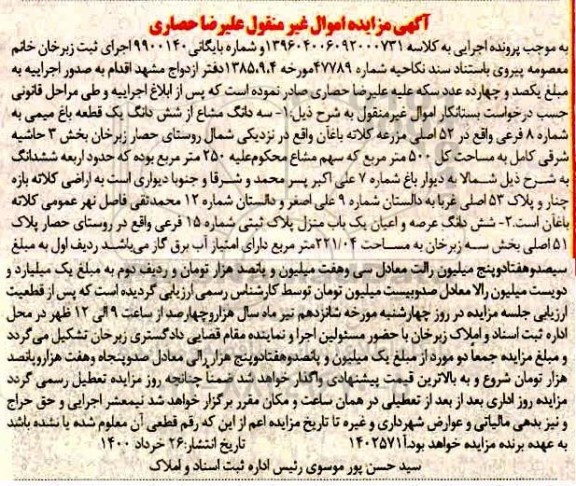 آگهی مزایده اموال غیر منقول علیرضا حصاری
به موجب پرونده اجرایی به کلاسه ۱۳۹۶۰۴۰۰۶۰۹۲۰۰۰۷۳۱و شماره بایگانی۹۹۰۰۱۴۰ اجرای ثبت زبرخان خانم
معصومه پیروی باستناد سند نکاحیه شماره ۴۷۷۸۹مورخه ۱۳۸۵.۹.۴دفتر ازدواج مشهد اقدام به صدور اجراییه به
مبلغ یکصد و چهارده عدد سکه علیه علیرضا حصاری صادر نموده است که پس از ابلاغ اجراییه و طی مراحل قانونی
حسب درخواست بستانکار اموال غیرمنقول به شرح ذیل:۱- سه دانگ مشاع از شش دانگ یک قطعه باغ میمی به
شماره ۸ فرعی واقع در ۵۲ اصلی مزرعه کلاته باغآن واقع در نزدیکی شمال روستای حصار زبرخان بخش ۳ حاشیه
شرقی کامل به مساحت کل ۵۰۰ متر مربع که سهم مشاع محکوم‌علیه ۲۵۰ متر مربع بوده که حدود اربعه ششدانگ
به شرح ذیل شمالا به دیوار باغ شماره ۷ علی اکبر پسر محمد و شرقا و جنوبا دیواری است به اراضی کلاته بازه
چنار و پلاک ۵۳ اصلی غربا به دالستان شماره ۹ علی اصغر و دالستان شماره ۱۲ محمدتقی فاصل نهر عمومی کلاته
باغان است.۲- شش دانگ عرصه و اعیان یک باب منزل پلاک ثبتی شماره ۱۵ فرعی واقع در روستای حصار پلاک
۵۱ اصلی بخش سه زبرخان به مساحت ۲۲۱/۰۴متر مربع دارای امتیاز آب برق گاز می‌باشد ردیف اول به مبلغ
سیصدوهفتادوپنج میلیون رالت معادل سی وهفت میلیون و پانصد هزار تومان و ردیف دوم به مبلغ یک میلیارد و
دویست میلیون رالا معادل صدوبیست میلیون تومان توسط کارشناس رسمی ارزیابی گردیده است که پس از قطعیت
ارزیابی جلسه مزایده در روز چهارشنبه مورخه شانزدهم تیر ماه سال هزاروچهارصد از ساعت ۹ الی ۱۲ ظهر در محل
اداره ثبت اسناد و املاک زبرخان با حضور مسئولین اجرا و نماینده مقام قضایی دادگستری زبرخان تشکیل می‌گردد
و مبلغ مزایده جمعا دو مورد از مبلغ یک میلیون و پانصدوهفتادوپنج هزار رالی معادل صدوپنجاه وهفت هزاروپانصد
هزار تومان شروع و به بالاترین قیمت پیشنهادی واگذار خواهد شد ضمناً چنانچه روز مزایده تعطیل رسمی گردد
مزایده روز اداری بعد از بعد از تعطیلی در همان ساعت و مکان مقرر برگزار خواهد شد نیمعشر اجرایی و حق حراج
و نیز بدهی مالیاتی و عوارض شهرداری و غیره تا تاریخ مزایده اعم از این که رقم قطعی آن معلوم شده یا نشده باشد
به عهده برنده مزایده خواهد بود.آ۱۴۰۲۵۷۱ تاریخ انتشار:۲۶ خرداد ۱۴۰۰
سید حسن پور موسوی رئیس اداره ثبت اسناد و املاک